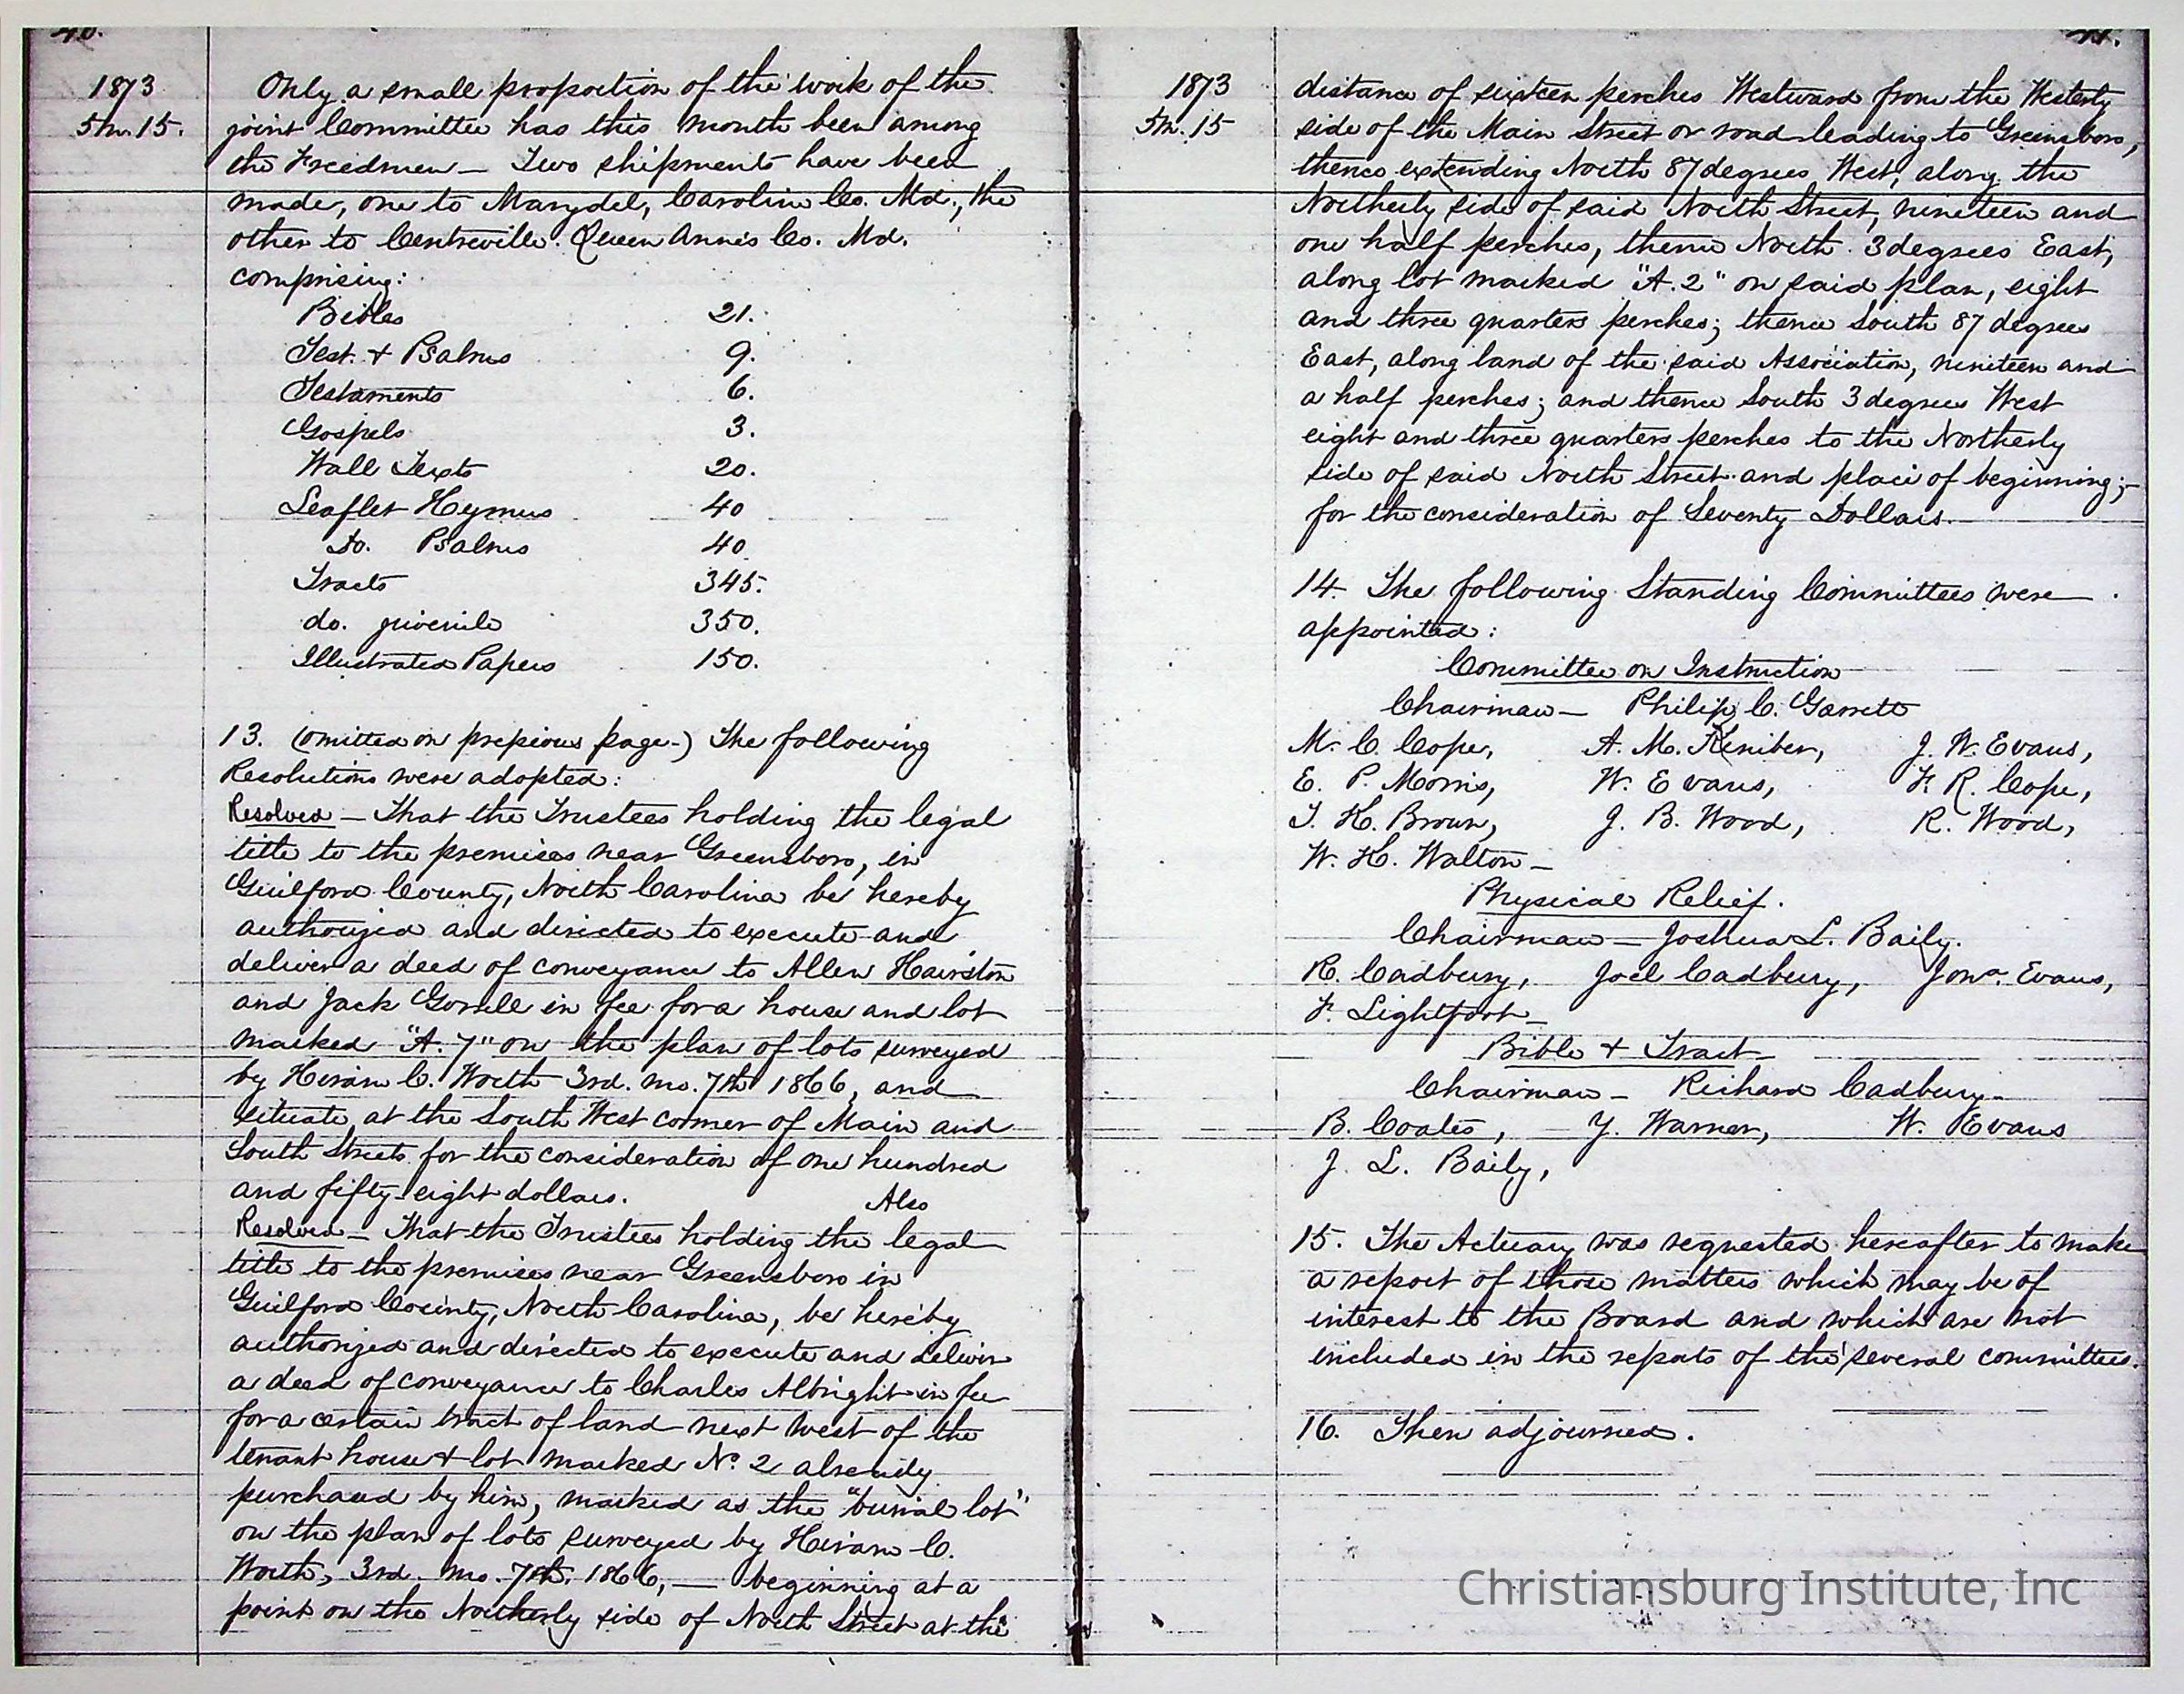 40.
1873
5m. 15.
Only a small proportion of the work of the
joint Committee has this month been among
the Freedmen — Two shipments have been
made, one to Marydel, Caroline Co. Md., the
other to Centreville. Queen Anne's Co. Md.
comprising:
Bibles 21.
Test. + Psalms 9.
Testaments 6.
Gospels 3.
Wall Texts 20.
Leaflet Hymns 40
Do. Psalms 40
Tracts 345.
do. juvenile 350.
Illustrated Papers 150.
13. (omitted on previous page-) The following
Resolutions were adopted:
Resolved — That the Trustees holding the legal
title to the premises near Greensboro, in
Guilford County, North Carolina be hereby
authorized and directed to execute and
deliver a deed of conveyance to Allen Hairston
and Jack Gorrell in fee for a house and lot
marked "A. 7" on the plan of lots surveyed
by Hiram C. Worth 3rd. mo. 7th 1866, and
situate, at the South West corner of Main and
South Streets for the consideration of one hundred
and fifty-eight dollars. Also
Resolved — That the Trustees holding the legal
title to the premises near Greensboro in
Guilford County, North Carolina, be hereby
authorized and directed to execute and deliver
a deed of conveyance to Charles Albright in fee
for a certain tract of land next west of the
tenant house + lot marked No. 2 already
purchased by him, marked as the "burial lot"
on the plan of lots surveyed by Hiram C.
Worth, 3rd. mo. 7th. 1866, — beginning at a
point on the Northerly side of North Street at the
41.
1873
5m. 15
distance of sixteen perches Westward from the Westerly
side of the Main Street or road leading to Greensboro,
thence extending North 87 degrees West, along the
Northerly side of said North Street, nineteen and
one half perches, thence North 3 degrees East,
along lot marked "A. 2" on said plan, eight
and three quarters perches; thence South 87 degrees
East, along land of the said Association, nineteen and
a half perches; and thence South 3 degrees West
eight and three quarters perches to the Northerly
side of said North Street and place of beginning;—
for the consideration of Seventy Dollars.
14. The following Standing Committees were
appointed:
Committee on Instruction
Chairman — Philip C. Garrett
M. C. Cope, A. M. Kimber, J. W. Evans,
E. P. Morris, W. Evans, F. R. Cope,
T. H. Brown, J. B. Wood, R. Wood,
W. H. Walton —
Physical Relief.
Chairman — Joshua L. Baily.
R. Cadbury, Joel Cadbury, Jona. Evans,
F. Lightfoot —
Bible + Tract
Chairman — Richard Cadbury —
B. Coates, Y. Warner, W. Evans
J. L. Baily,
15. The Actuary was requested hereafter to make
a report of those matters which may be of
interest to the Board and which are not
included in the reports of the several committees.
16. Then adjourned.
Christiansburg Institute, Inc